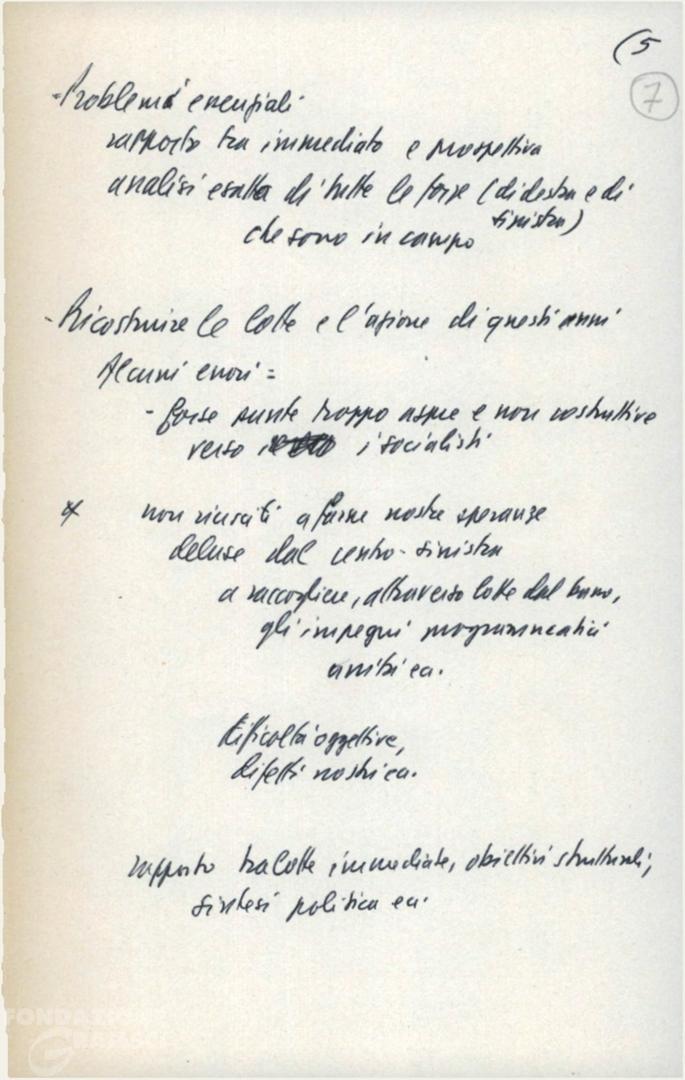 (5
7
- Problemi essenziali
rapporto tra immediato e prospettiva
analisi esatta di tutte le forze (di destra e di
sinistra)
che sono in campo
- Ricostruire le lotte e l'azione di questi anni
Alcuni errori =
- forse punte troppo aspre e non costruttive
verso i socialisti
* non riusciti a farne nostre speranze
deluse dal centro-sinistra
a raccogliere, attraverso lotte dal basso,
gli impegni programmatici
unità ecc.
difficoltà oggettive,
difetti nostri ecc.
rapporto tra lotte immediate, obiettivi strutturali,
sintesi politica ecc.
FONDAZIONE
GRAMSCI